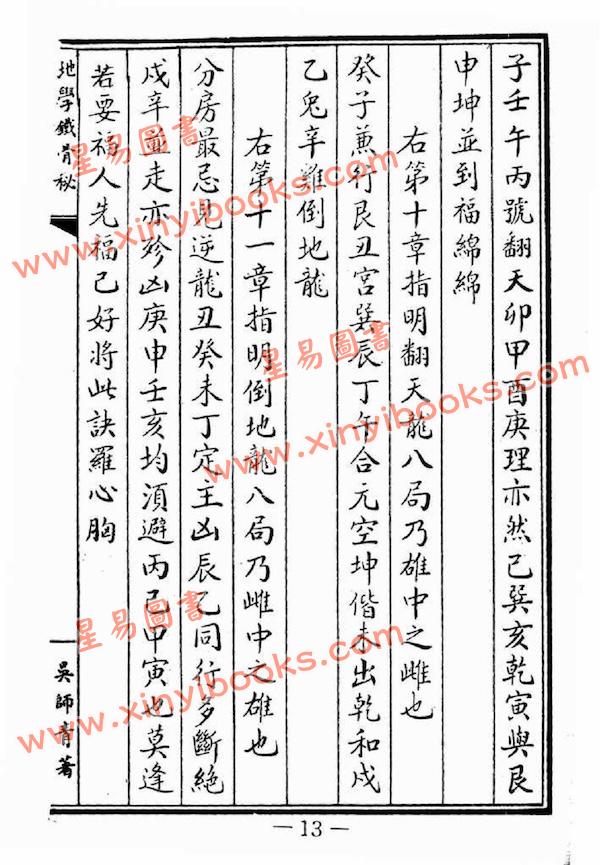 子壬午丙號翻天卯甲酉庚理亦然巳巽亥乾寅與艮
申坤並到福綿綿
右第十章指明翻天龍八局乃雄中之雌也
癸子兼行艮丑宮巽辰丁午合元空坤偕未出乾和戍
乙兔辛雞倒地龍
右第十一章指明倒地龍八局乃雌中之雄也
分房最忌見逆龍丑癸未丁定主凶辰乙同行多斷絕
戍辛並走亦殄凶庚申壬亥均須避丙巳甲寅也莫逢
若要福人先福己好將此訣羅心胸
地學鐵骨秘
吳師青著
—13—
星易圖書
www.xinyibooks.com
星易圖書
www.xinyibooks.com
星易圖書
www.xinyibooks.com